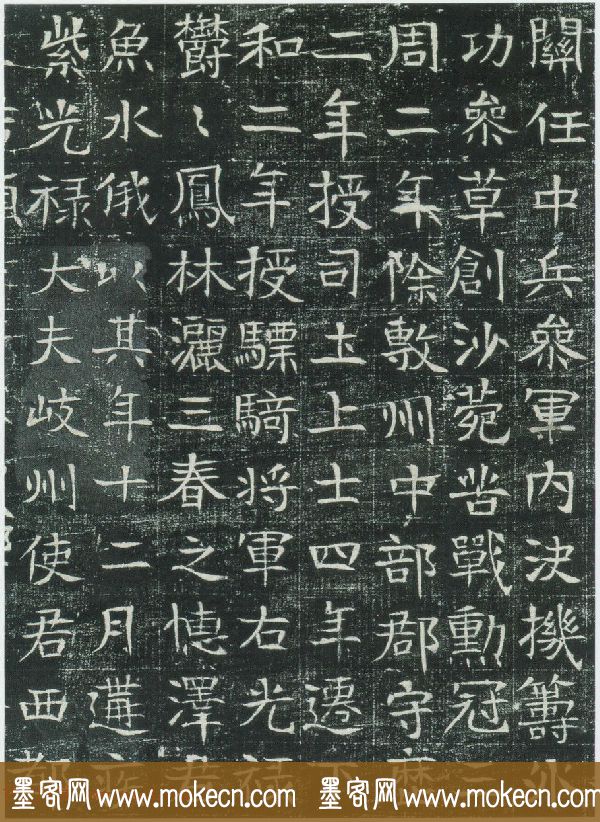 關任中兵叅軍内決機籌
功叅草創沙菀苦戰勳冠
周二年除敷州中部郡守
二年授司土上士四年遷
和二年授驃騎将軍右光
欝〻鳳林灑三春之徳澤
魚水俄以其年十二月遘
紫光禄大夫岐州使君西
墨客网 www.mokecn.com 墨客网 www.mokecn.com